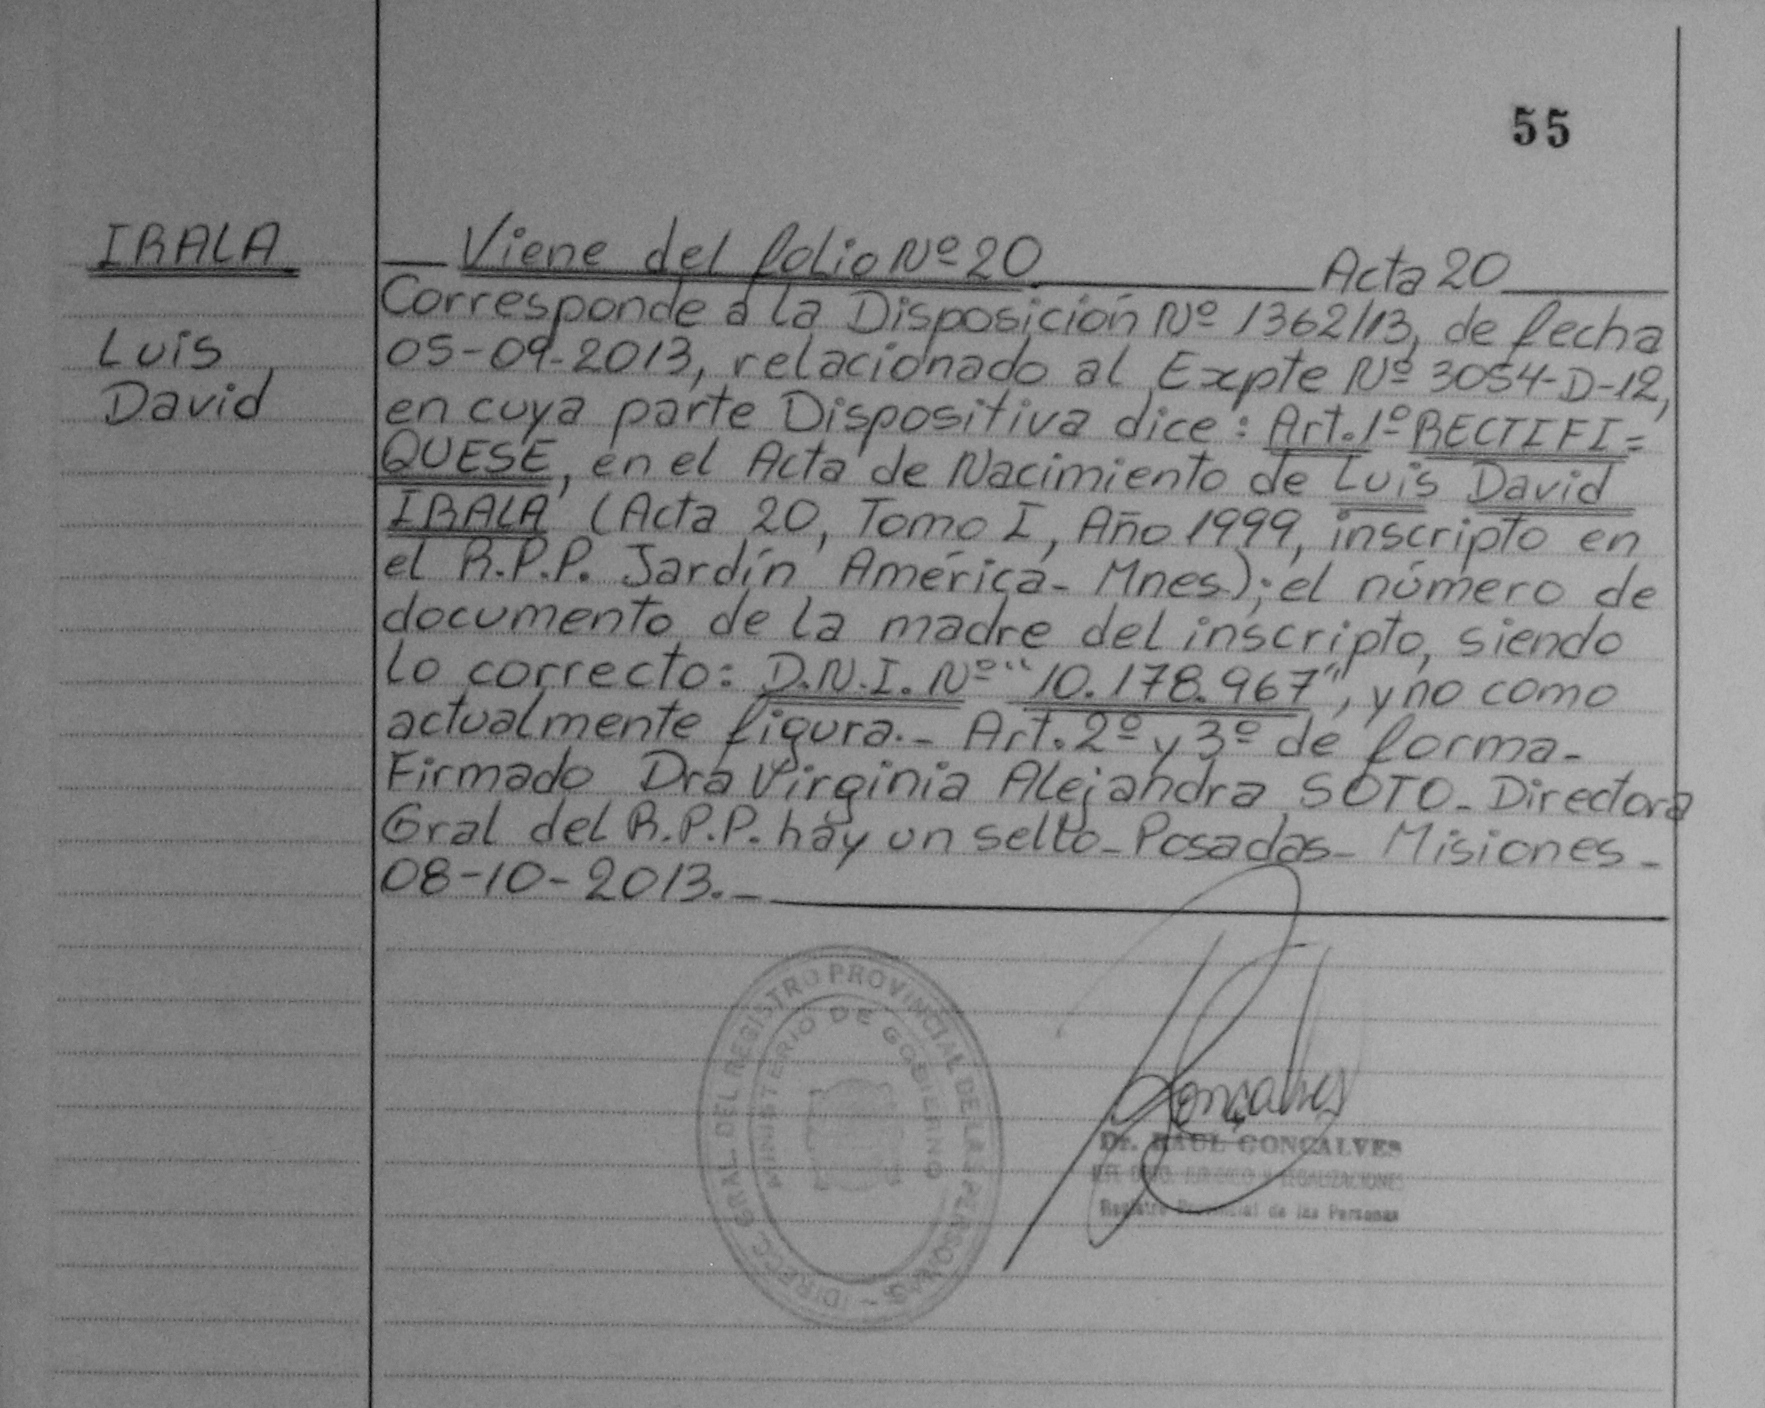 55
IRALA
Luis
David
Viene del folio Nº 20 Acta 20
Corresponde a la Disposición Nº 1362/13, de fecha
05-09-2013, relacionado al Expte Nº 3054-D-12,
en cuya parte Dispositiva dice: Art. 1º RECTIFI=
QUESE, en el Acta de Nacimiento de Luis David
IRALA (Acta 20, Tomo I, Año 1999, inscripto en
el R.P.P. Jardín América - Mnes); el número de
documento de la madre del inscripto, siendo
lo correcto: D.N.I. Nº "10.178.967", y no como
actualmente figura.- Art. 2º y 3º de forma-
Firmado Dra Virginia Alejandra SOTO - Directora
Gral del R.P.P. hay un sello - Posadas - Misiones -
08-10-2013.-
DIREC. GRAL. DEL REGISTRO PROVINCIAL DE LAS PERSONAS -
MINISTERIO DE GOBIERNO
Gonçalves
Dr. RAUL GONÇALVES
JURIDICO Y LEGALIZACIONES
Registro Provincial de las Personas